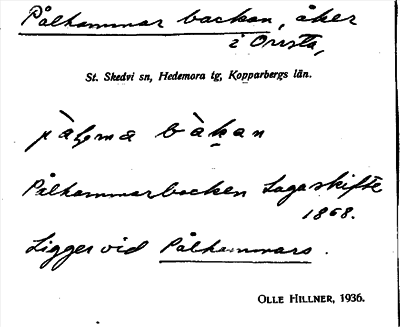 Pålhammar backan, åker
i Orvsta,
St. Skedvi sn, Hedemora tg, Kopparbergs län.
bàkan
Pålhammarbacken Lagaskifte
1868.
Ligger vid Pålhammars.
OLLE HILLNER, 1936.